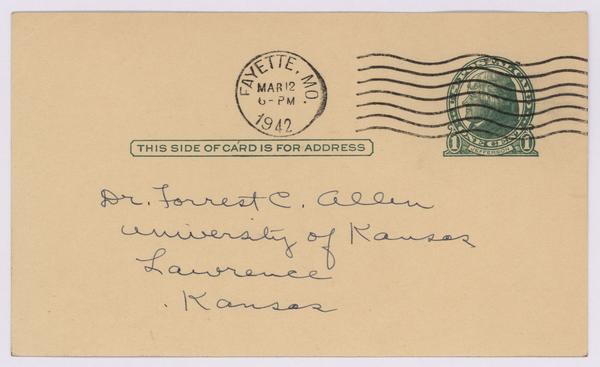 FAYETTE, MO.
MAR 12
6-PM
1942
1 JEFFERSON 1
THIS SIDE OF CARD IS FOR ADDRESS
Dr. Forrest C. Allen
University of Kansas
Lawrence
Kansas